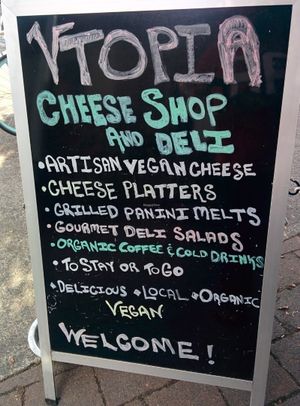 VTOPIA
CHEESE SHOP
AND DELI
• ARTISAN VEGAN CHEESE
• CHEESE PLATTERS
• GRILLED PANINI MELTS
• GOURMET DELI SALADS
• ORGANIC COFFEE & COLD DRINKS
• TO STAY OR TO GO
• DELICIOUS • LOCAL • ORGANIC
VEGAN
WELCOME!